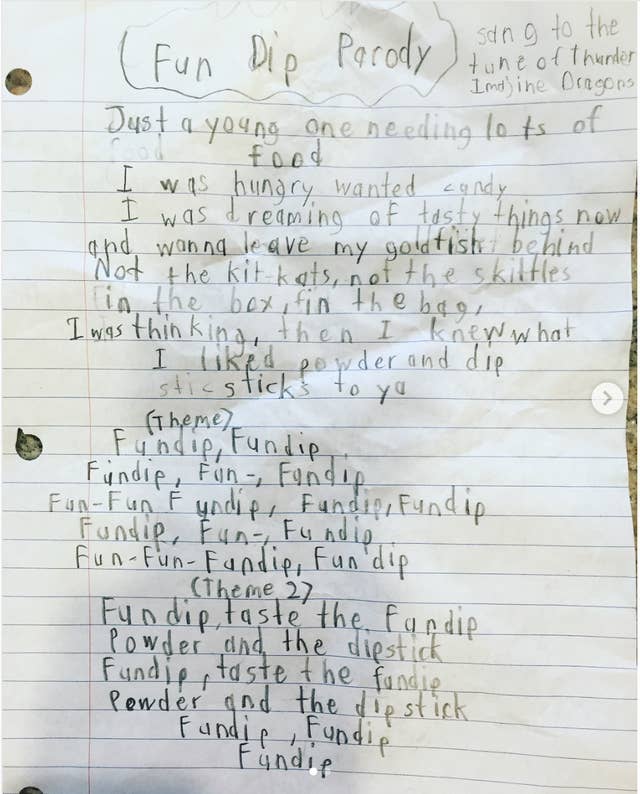 (Fun Dip Parody)
sang to the
tune of thunder
Imajine Dragons
Just a young one needing lots of
food
food
I was hungry wanted candy
I was dreaming of tasty things now
and wanna leave my goldfish behind
Not the kit-kats, not the skittles
in the box, in the bag,
I was thinking, then I knew what
I liked powder and dip
stic sticks to ya
(Theme)
Fundip, Fundip
Fundip, Fun-, Fundip
Fun-Fun Fundip, Fundip, Fundip
Fundip, Fun-, Fundip
Fun-Fun-Fundip, Fun dip
(Theme 2)
Fundip, taste the Fundip
Powder and the dipstick
Fundip, taste the fundip
Powder and the dipstick
Fundip, Fundip
Fundip